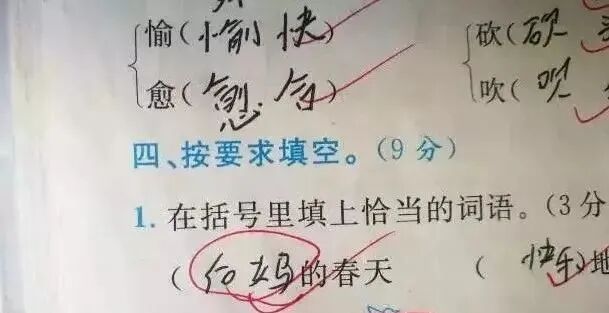 愉(愉快) 砍(砍
愈(愈合) 吹(吹
四、按要求填空。(9分)
1.在括号里填上恰当的词语。(3分
(你妈的春天 (快乐)地